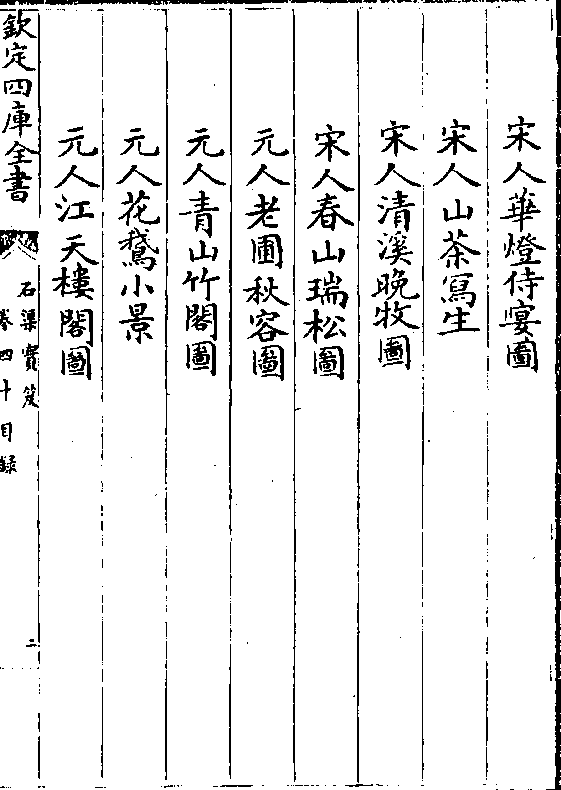 宋人華燈侍宴圖
宋人山茶寫生
宋人清溪晚牧圖
宋人春山瑞松圖
元人老圃秋容圖
元人青山竹閣圖
元人花鵝小景
元人江天樓閣圖
欽定四庫全書
石渠寳笈
卷四十目録
二